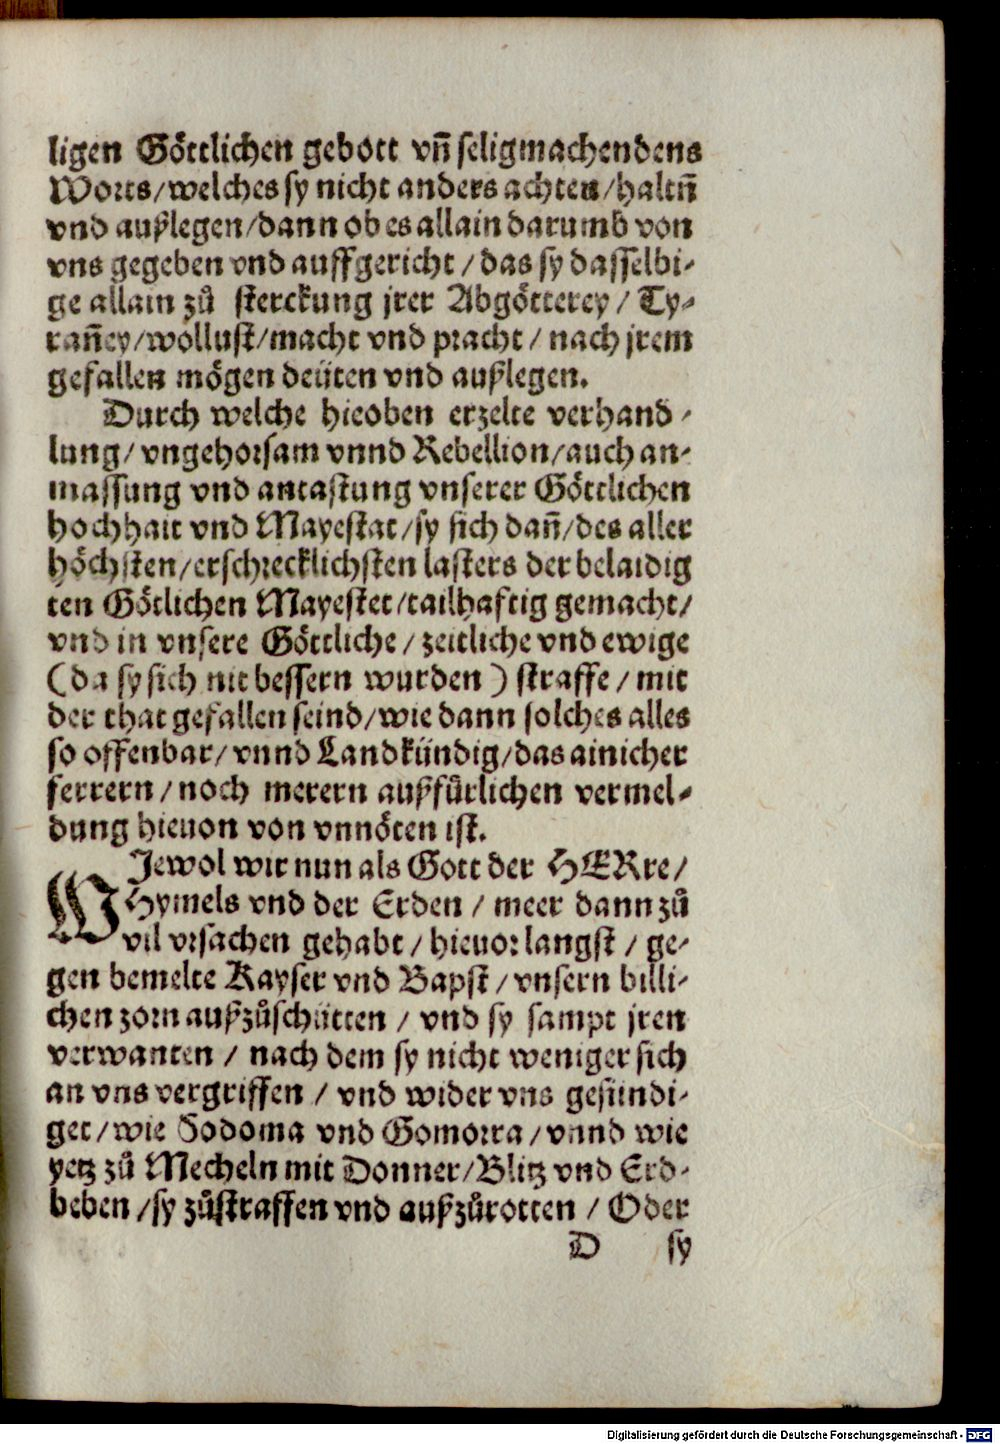 ligen Göttlichen gebott vñ seligmachendens
Worts/welches sy nicht anders achten/haltñ
vnd außlegen/dann ob es allain darumb von
vns gegeben vnd auffgericht/das sy dasselbi-
ge allain zů sterckung jrer Abgötterey/Ty-
rañey/wollust/macht vnd pracht/nach jrem
gefallen mögen deüten vnd außlegen.
Durch welche hieoben erzelte verhand-
lung/vngehorsam vnnd Rebellion/auch an-
massung vnd antastung vnserer Göttlichen
hochhait vnd Mayestat/sy sich dañ/des aller
höchsten/erschrecklichsten lasters der belaidig
ten Götlichen Mayestet/tailhafftig gemacht/
vnd in vnsere Göttliche/zeitliche vnd ewige
(da sy sich nit bessern wurden) straffe/mit
der that gefallen seind/wie dann solches alles
so offenbar/vnnd Landkündig/das ainicher
ferrern/noch merern außfürlichen vermel-
dung hieuon von vnnöten ist.
WIewol wir nun als Gott der HERre/
Hymels vnd der Erden/meer dann zů
vil vrsachen gehabt/hieuor langst/ge-
gen bemelte Kayser vnd Bapst/vnsern billi-
chen zorn außzůschütten/vnd sy sampt jren
verwanten/nach dem sy nicht weniger sich
an vns vergriffen/vnd wider vns gesündi-
get/wie Sodoma vnd Gomorra/vnnd wie
yetz zů Mecheln mit Donner/Blitz vnd Erd-
beben/sy zůstraffen vnd außzůrotten/Oder
D sy
Digitalisierung gefördert durch die Deutsche Forschungsgemeinschaft - DFG